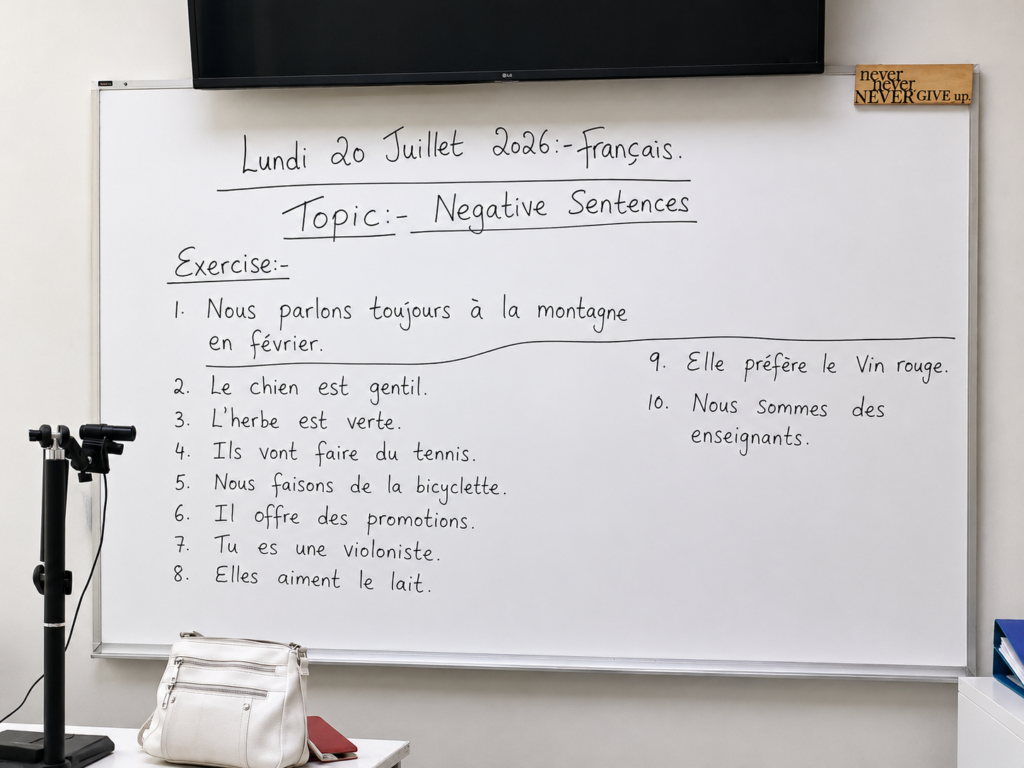 LG
never
never
NEVER GIVE up.
Lundi 20 Juillet 2026:- Français.
Topic:- Negative Sentences
Exercise:-
1. Nous parlons toujours à la montagne
en février.
2. Le chien est gentil.
3. L'herbe est verte.
4. Ils vont faire du tennis.
5. Nous faisons de la bicyclette.
6. Il offre des promotions.
7. Tu es une violoniste.
8. Elles aiment le lait.
9. Elle préfère le Vin rouge.
10. Nous sommes des
enseignants.